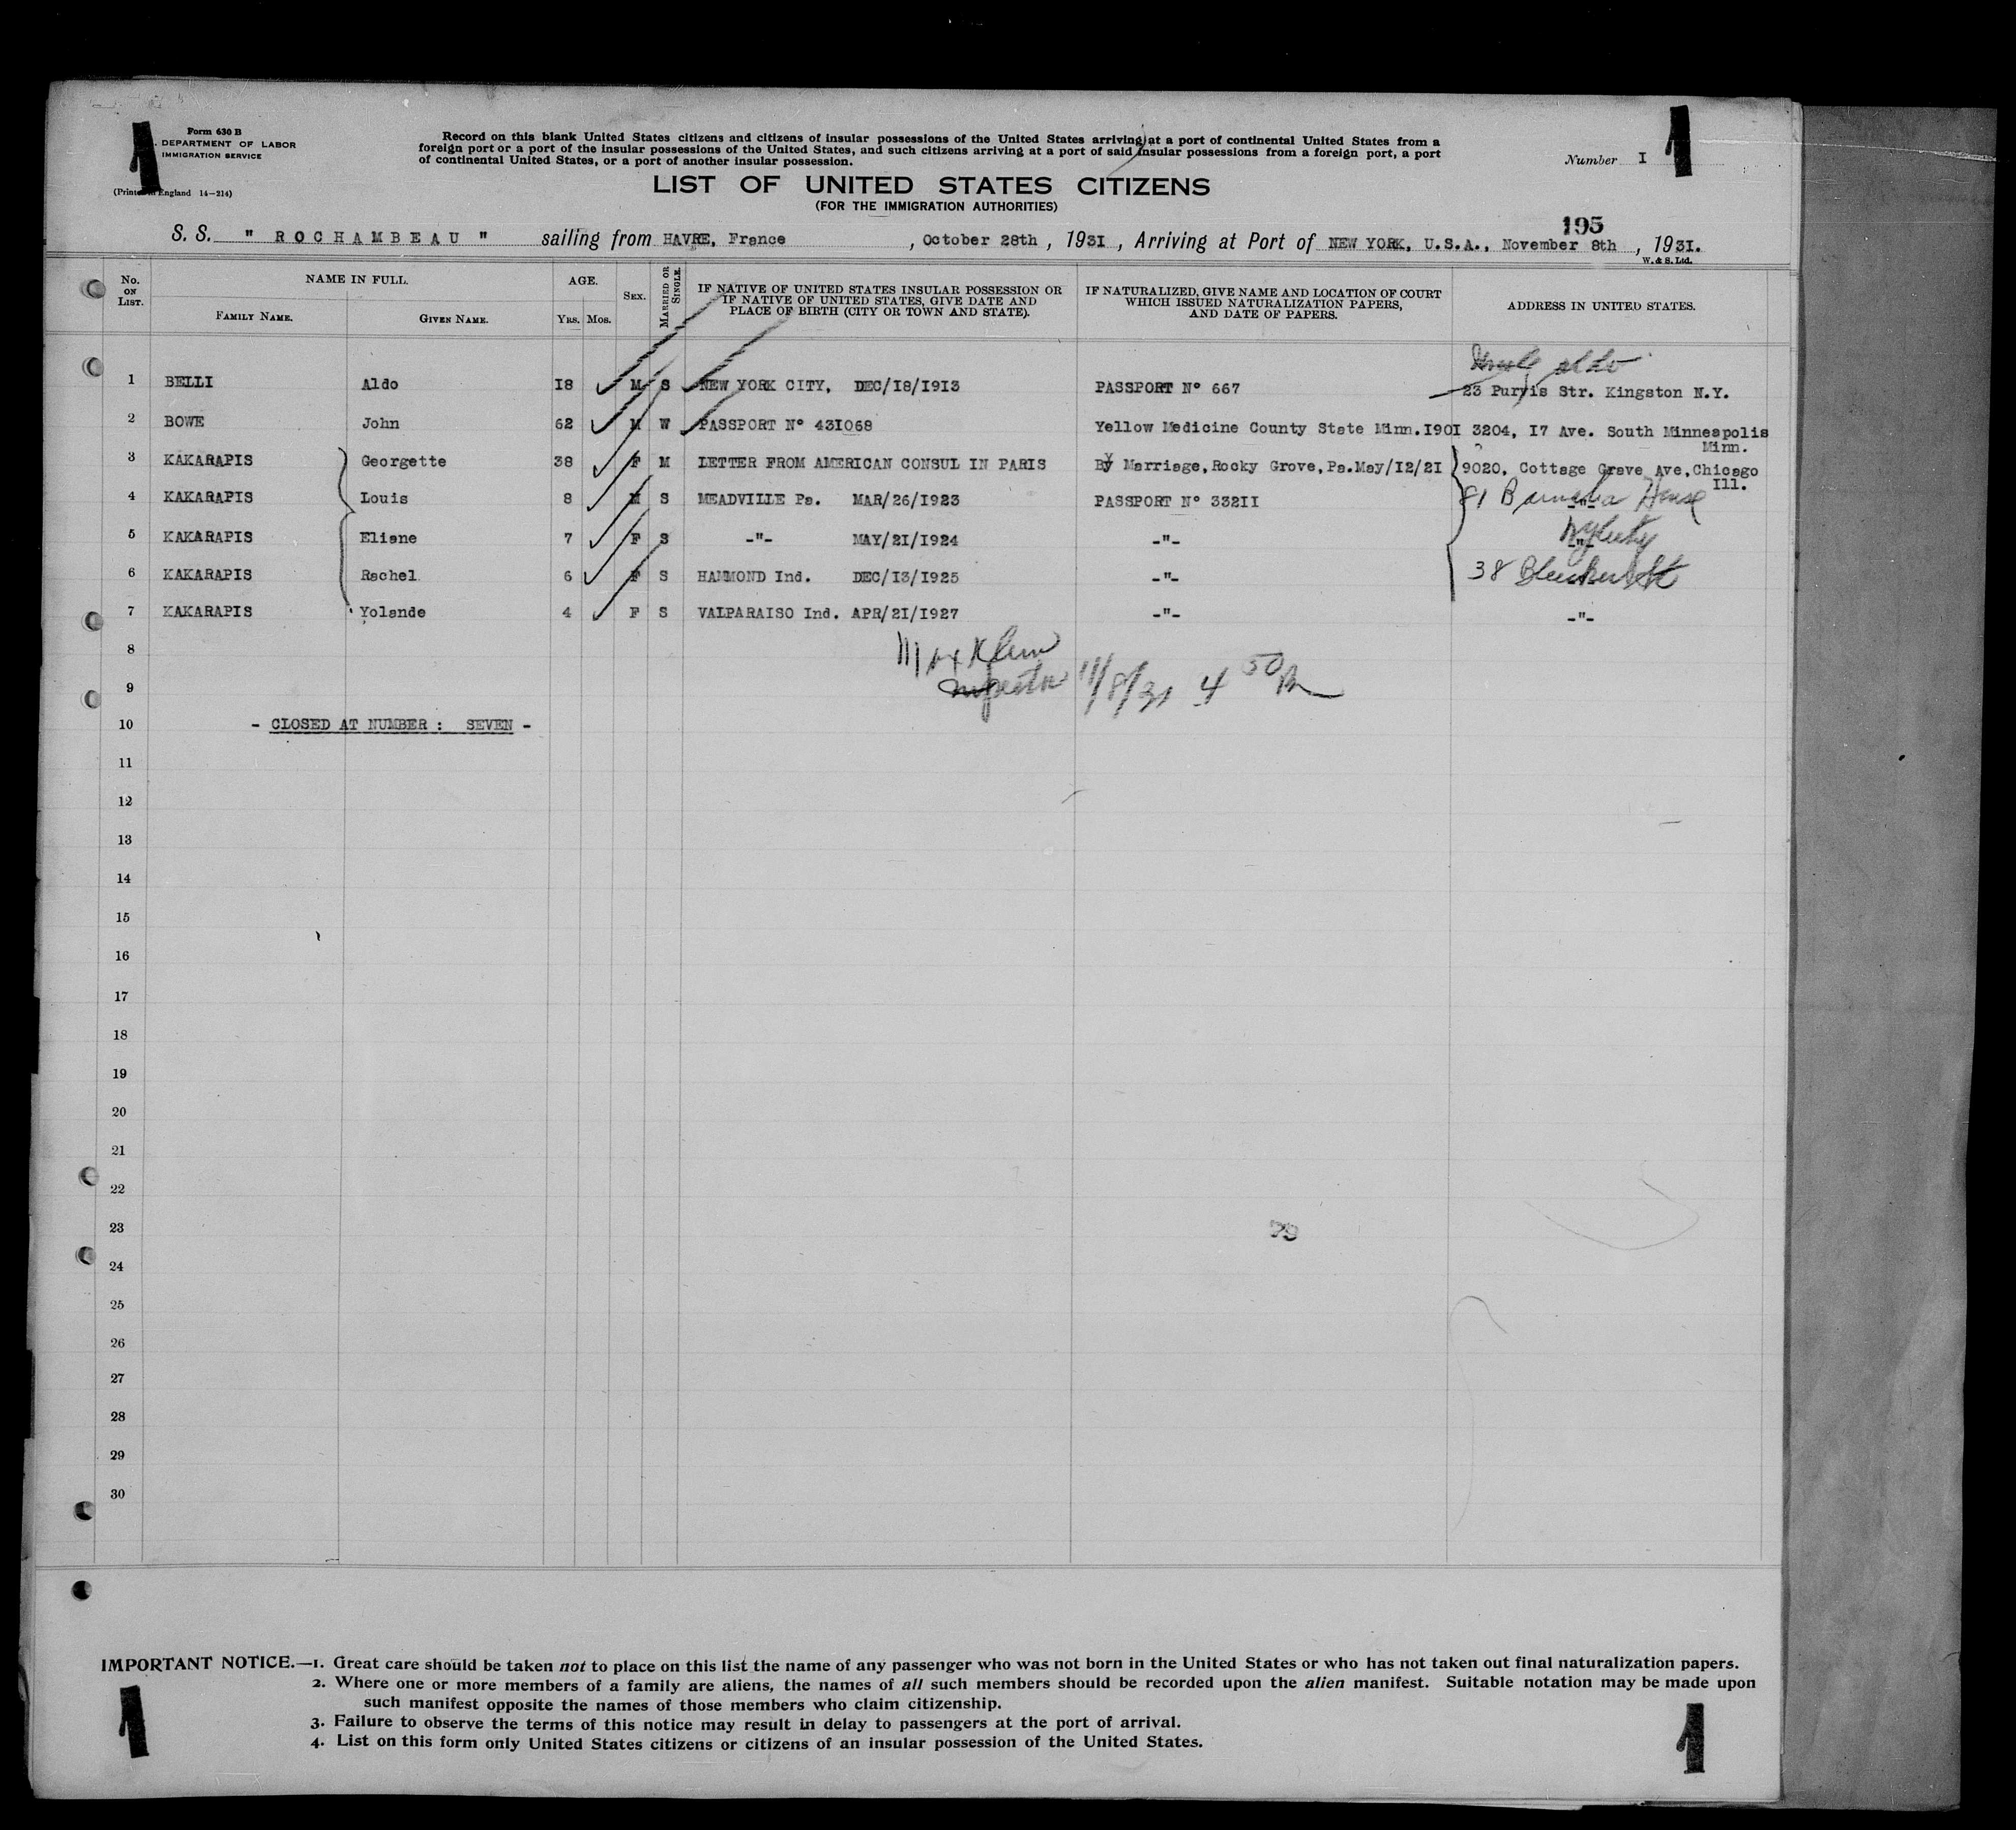 Form 630 B
DEPARTMENT OF LABOR
IMMIGRATION SERVICE
(Printed in England 14-214)
Record on this blank United States citizens and citizens of insular possessions of the United States arriving at a port of continental United States from a
foreign port or a port of the insular possessions of the United States, and such citizens arriving at a port of said insular possessions from a foreign port, a port
of continental United States, or a port of another insular possession.
Number I
1
1
LIST OF UNITED STATES CITIZENS
(FOR THE IMMIGRATION AUTHORITIES)
195
S. S. " ROCHAMBEAU " sailing from HAVRE, France , October 28th , 1931 , Arriving at Port of NEW YORK, U.S.A., November 8th , 1931.
W. & S. Ltd.
No. ON LIST.
NAME IN FULL.
FAMILY NAME. GIVEN NAME.
AGE.
YRS. MOS.
SEX.
MARRIED OR SINGLE.
IF NATIVE OF UNITED STATES INSULAR POSSESSION OR
IF NATIVE OF UNITED STATES, GIVE DATE AND
PLACE OF BIRTH (CITY OR TOWN AND STATE).
IF NATURALIZED, GIVE NAME AND LOCATION OF COURT
WHICH ISSUED NATURALIZATION PAPERS,
AND DATE OF PAPERS.
ADDRESS IN UNITED STATES.
aldo
1 BELLI Aldo I8 M S NEW YORK CITY, DEC/I8/I9I3 PASSPORT N° 667 23 Purvis Str. Kingston N.Y.
2 BOWE John 62 M W PASSPORT N° 43I068 Yellow Medicine County State Minn.I90I 3204, I7 Ave. South Minneapolis
Minn.
3 KAKARAPIS Georgette 38 F M LETTER FROM AMERICAN CONSUL IN PARIS By Marriage,Rocky Grove,Pa.May/I2/2I 9020, Cottage Grave Ave,Chicago
Ill.
4 KAKARAPIS Louis 8 M S MEADVILLE Pa. MAR/26/I923 PASSPORT N° 332II -"-
81 House
5 KAKARAPIS Eliane 7 F S -"- MAY/2I/I924 -"- -"-
6 KAKARAPIS Rachel 6 F S HAMMOND Ind. DEC/I3/I925 -"-
38 Bleecker St
7 KAKARAPIS Yolande 4 F S VALPARAISO Ind. APR/2I/I927 -"- -"-
8
Max Klein
9
Inspector 11/8/31 4 50 Pm
10 - CLOSED AT NUMBER : SEVEN -
11
12
13
14
15
16
17
18
19
20
21
22
23
24
25
26
27
28
29
30
IMPORTANT NOTICE.—1. Great care should be taken not to place on this list the name of any passenger who was not born in the United States or who has not taken out final naturalization papers.
2. Where one or more members of a family are aliens, the names of all such members should be recorded upon the alien manifest. Suitable notation may be made upon
such manifest opposite the names of those members who claim citizenship.
3. Failure to observe the terms of this notice may result in delay to passengers at the port of arrival.
4. List on this form only United States citizens or citizens of an insular possession of the United States.
1
1